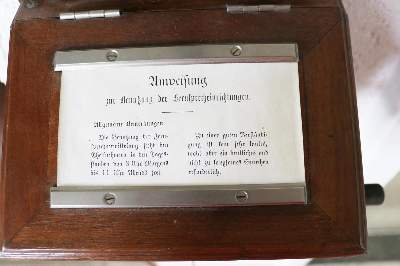 Anweisung
zur Benutzung der Fernsprecheinrichtungen.
Allgemeine Bemerkungen
Die Benutzung der Fern-
sprechvermittelung steht den
Theilnehmern in den Tages-
stunden von 8 Uhr Morgens
bis 11 Uhr Abends frei.
Zu einer guten Verständi-
gung ist kein sehr lautes,
wohl aber ein deutliches und
nicht zu langsames Sprechen
erforderlich.